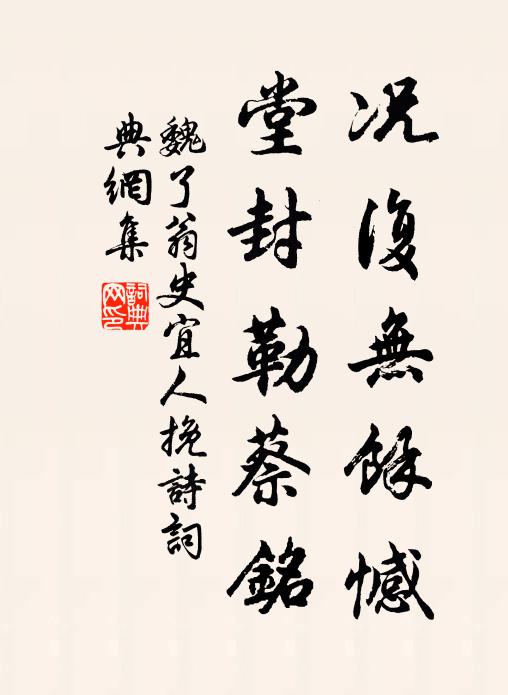 况復無餘憾
堂封勒蔡銘
魏了翁史宜人挽詩詞
典網集
詞典網印